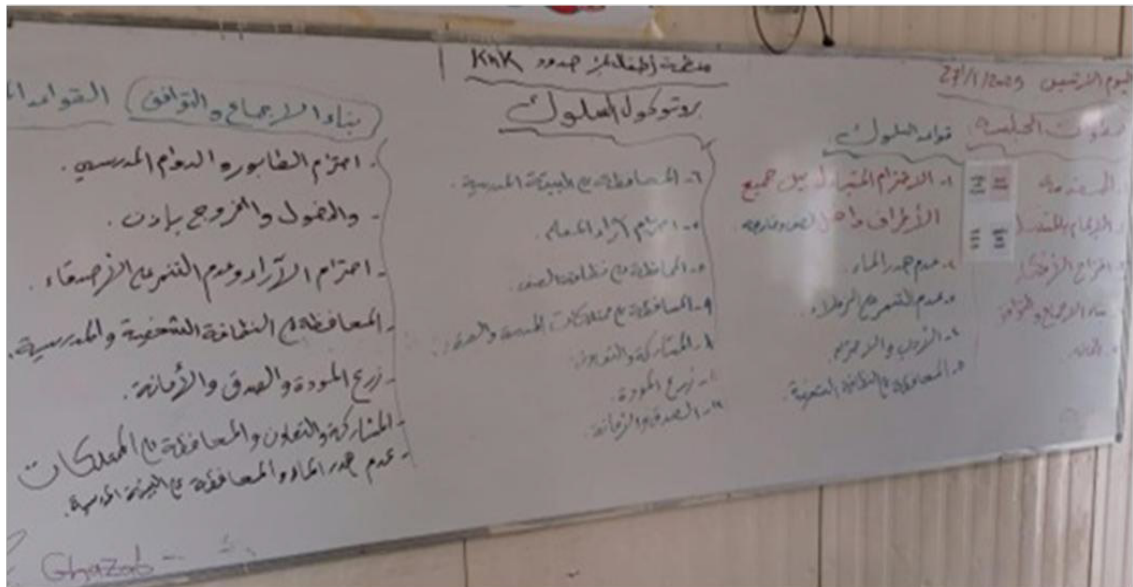 منظمة أطفال بلا حدود KnK
اليوم الاثنين 27/1/2025
بروتوكول السلوك
خطوات الجلسة:
١- المقدمة
٢- الإلمام بالمشكلة
٣- اقتراح الأفكار
٤- بناء الإجماع والتوافق
قواعد السلوك
١- الاحترام المتبادل بين جميع
الأطراف داخل الصف وخارجه
٢- عدم هدر الماء.
٣- عدم التنمر مع الزملاء
٤- الأدب والاحترام
٥- المحافظة على النظافة الشخصية.
٦- المحافظة على البيئة المدرسية.
٧- احترام آراء المعلم.
٨- المحافظة على نظافة الصف.
٩- المحافظة على ممتلكات المدرسة والصف.
المشاركة والتعاون.
زرع المودة.
الصدق والأمانة.
بناء الإجماع والتوافق
القواعد
- احترام الطابور والدوام المدرسي.
- والدخول والخروج بإذن.
- احترام الآراء وعدم التنمر مع الأصدقاء.
- المحافظة على النظافة الشخصية والمدرسية.
- زرع المودة والصدق والأمانة.
- المشاركة والتعاون والمحافظة على الممتلكات
- عدم هدر الماء والمحافظة على البيئة المدرسية.
Ghazab